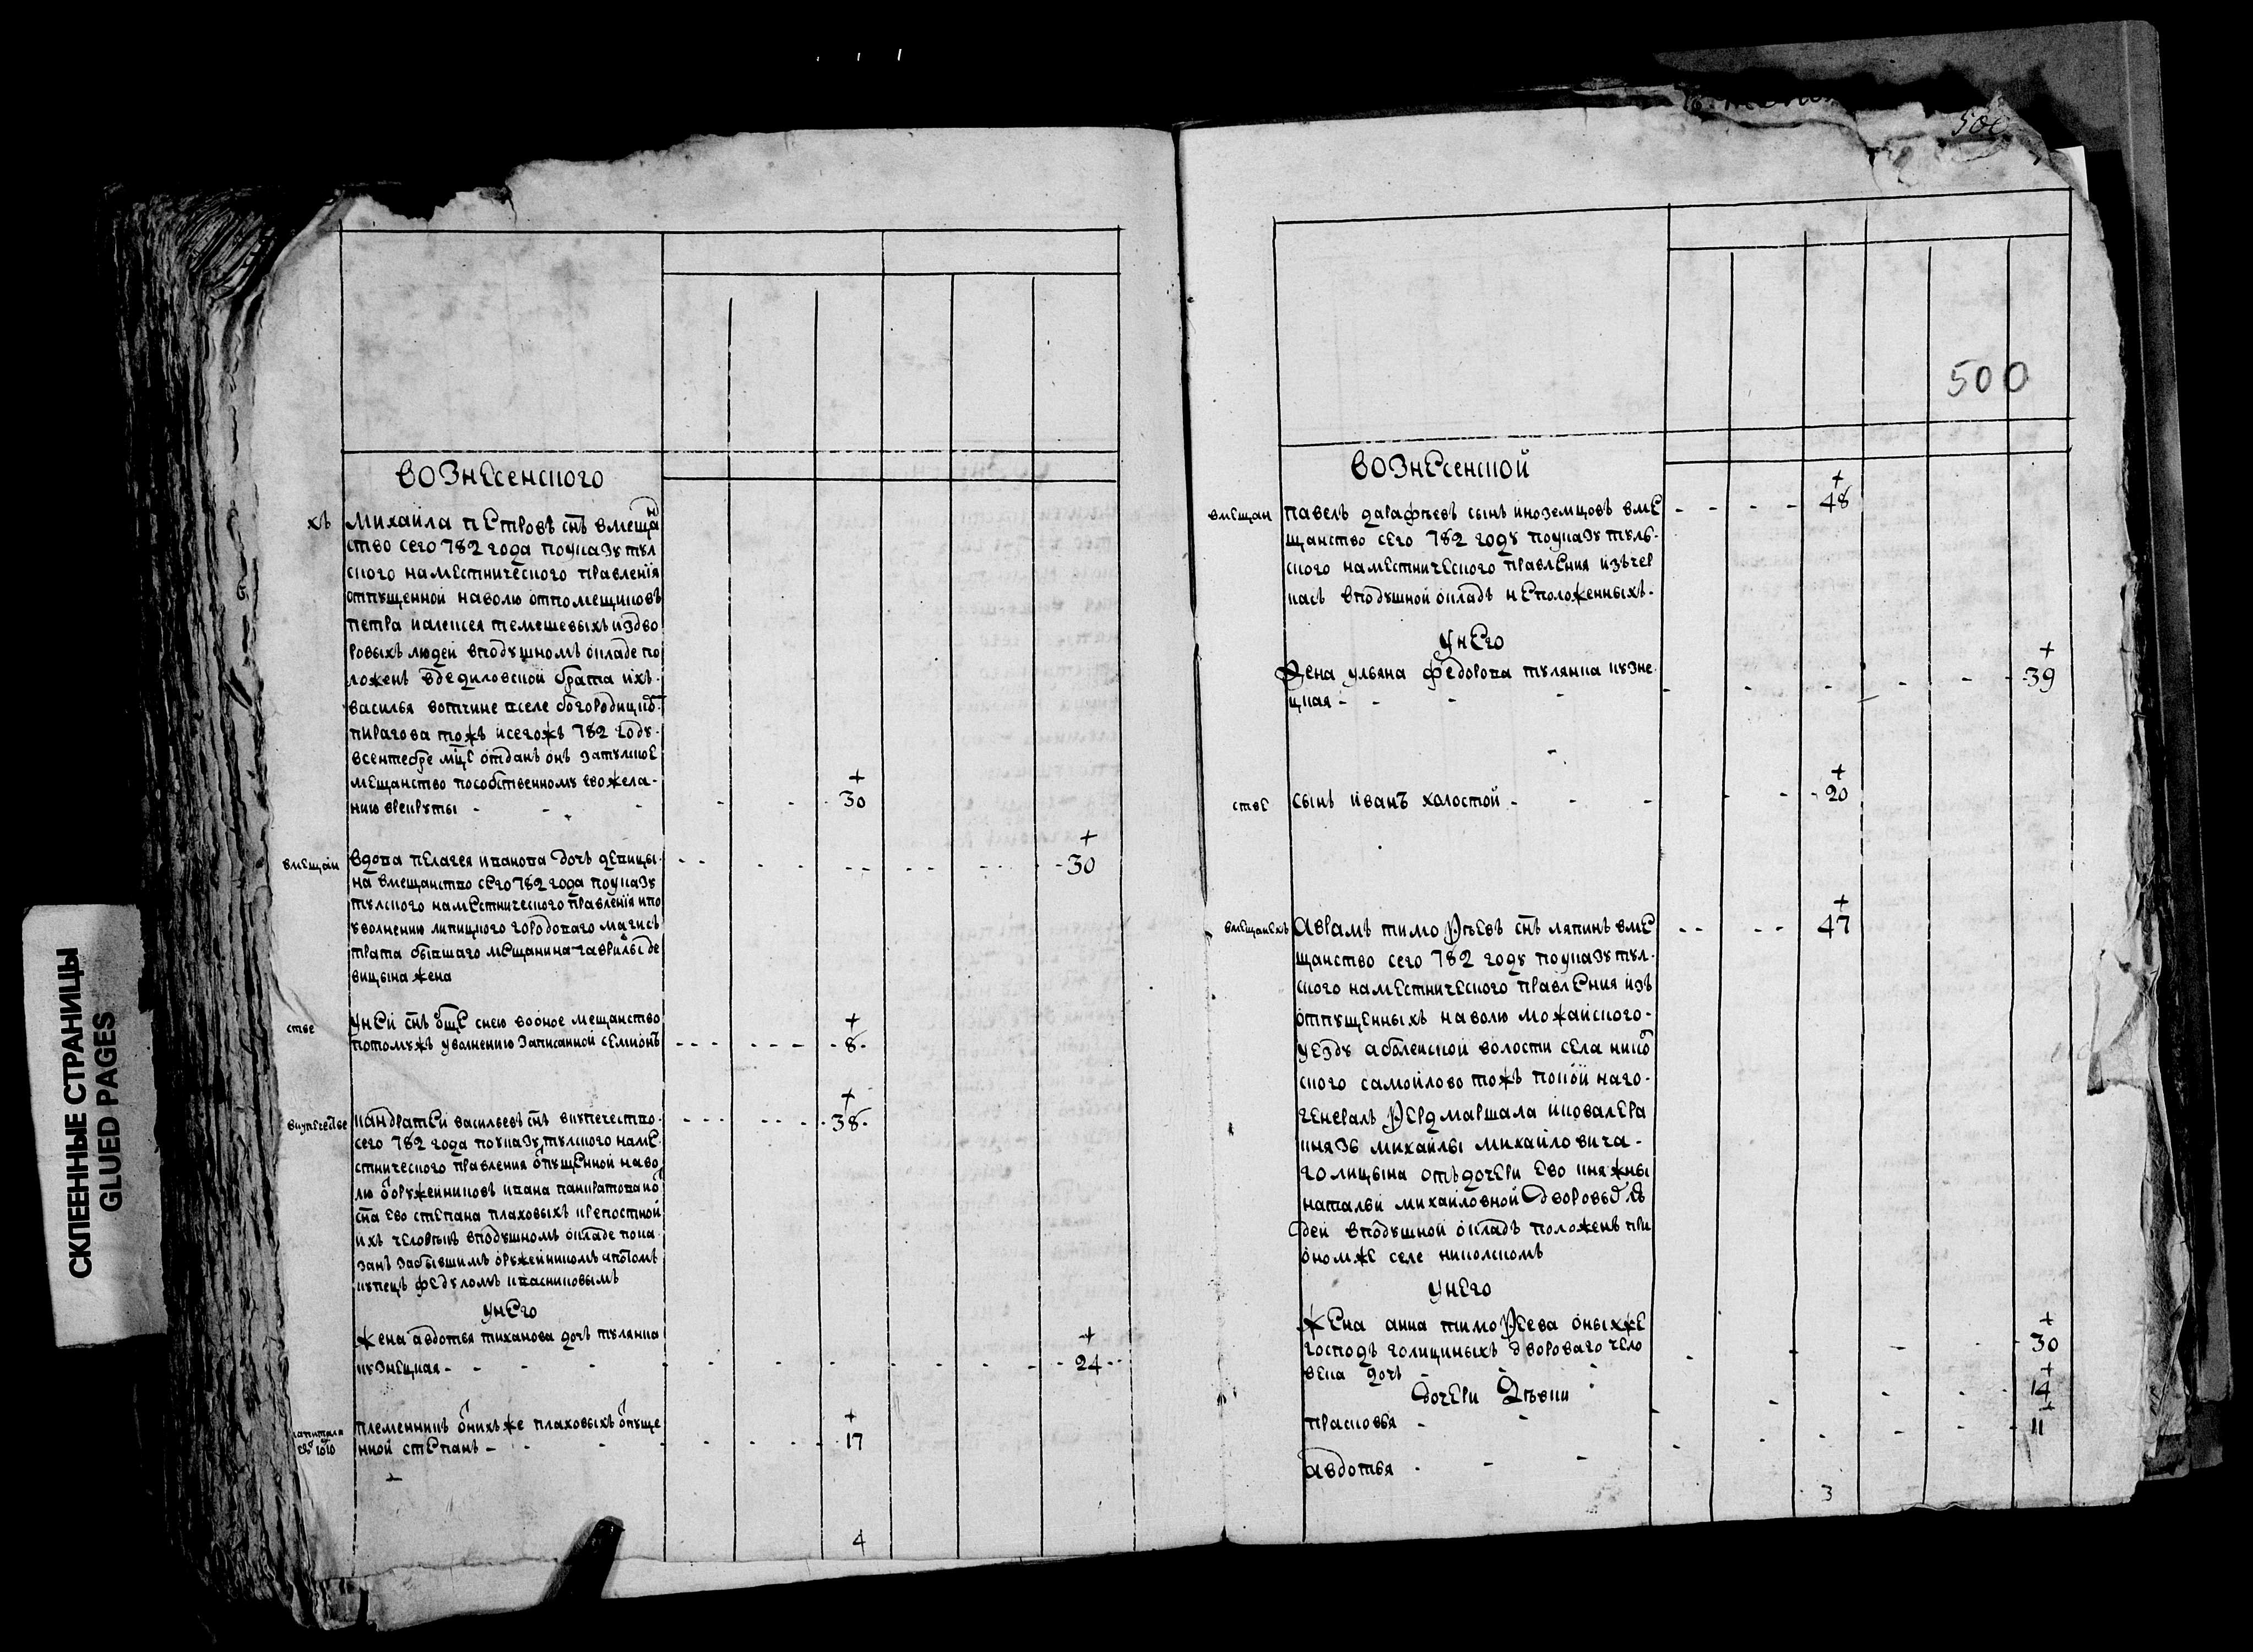 СКЛЕЕННЫЕ СТРАНИЦЫ
GLUED PAGES
вознесенского
хъ
михаила петровъ снъ вмещан
ство сего 782 года поуказу тул
ского наместнического правленїя
отпущенной наволю отпомещиковъ
петра иалексея темешевыхъ издво
ровыхъ людей вподушномъ окладе по
ложенъ вдедиловской брата ихъ
василья вотчине вселе богородицкб
пирагова тожъ исегожъ 782 году
всентебре мцѣ отданъ онъ затулкое
мещанство пособственному евожела-
нию врекруты - - -
+
30
вмещан
вдова пелагея иванова дочь девицы
на вмещанство сего 782 года поуказу
тулского наместнического правленїя ипо
уволнению липицкого городоваго магис
трата бывшаго мещанина гаврилы де
вицына жена
+
30
стве
уней снъ обще снею воное мещанство
потомужъ уволнению записанной семионъ
+
8
вкупечестве
кандратей васильевъ снъ вкупечество
сего 782 года поуказу тулского наме
стнического правления опущенной наво
лю оружейниковъ ивана панкратова ио
сна ево степана плаховыхъ крепостной
ихъ человекъ вподушномъ окладе пока
занъ забывшимъ оружейникомъ ипотомъ
купецъ федуломъ квасниковымъ
+
38
унего
жена авдотья тиханова дочь тулянка
кузнецкая - - -
+
24
капитала
племянникъ онихъже плаховыхъ опуще
нной степанъ - - -
+
17
4
500
500
вознесенской
вмещан
павелъ дарафѣевъ сынъ иноземцовъ вме
щанство сего 782 году поуказу туль-
ского наместнического правления изъчер
касъ вподушной окладъ неположенныхъ
+
48
унего
жена ульяна федорова тулянка кузне
цкая - - -
+
39
стве
сынъ иванъ холостой - - -
+
20
вмещанехъ
аврамъ тимофѣевъ снъ ляпинъ вме
щанство сего 782 году поуказу тул-
ского наместнического правления изъ
отпущенныхъ наволю можайского
уезду аболенской волости села нико
ского самойлово тожъ покойнаго
генералъ фердмаршала иковалера
князь михайлы михайловича
голицына отъдочери ево княжны
натальи михайловной дворовыхъ лю
дей вподушной окладъ положенъ при
ономже селе николскомъ
+
47
унего
жена анна тимофеева оныхже
господъ голицыныхъ двороваго чело
века дочь
+
30
дочери дѣвки
прасковья -
+
14
авдотья - - -
+
11
3